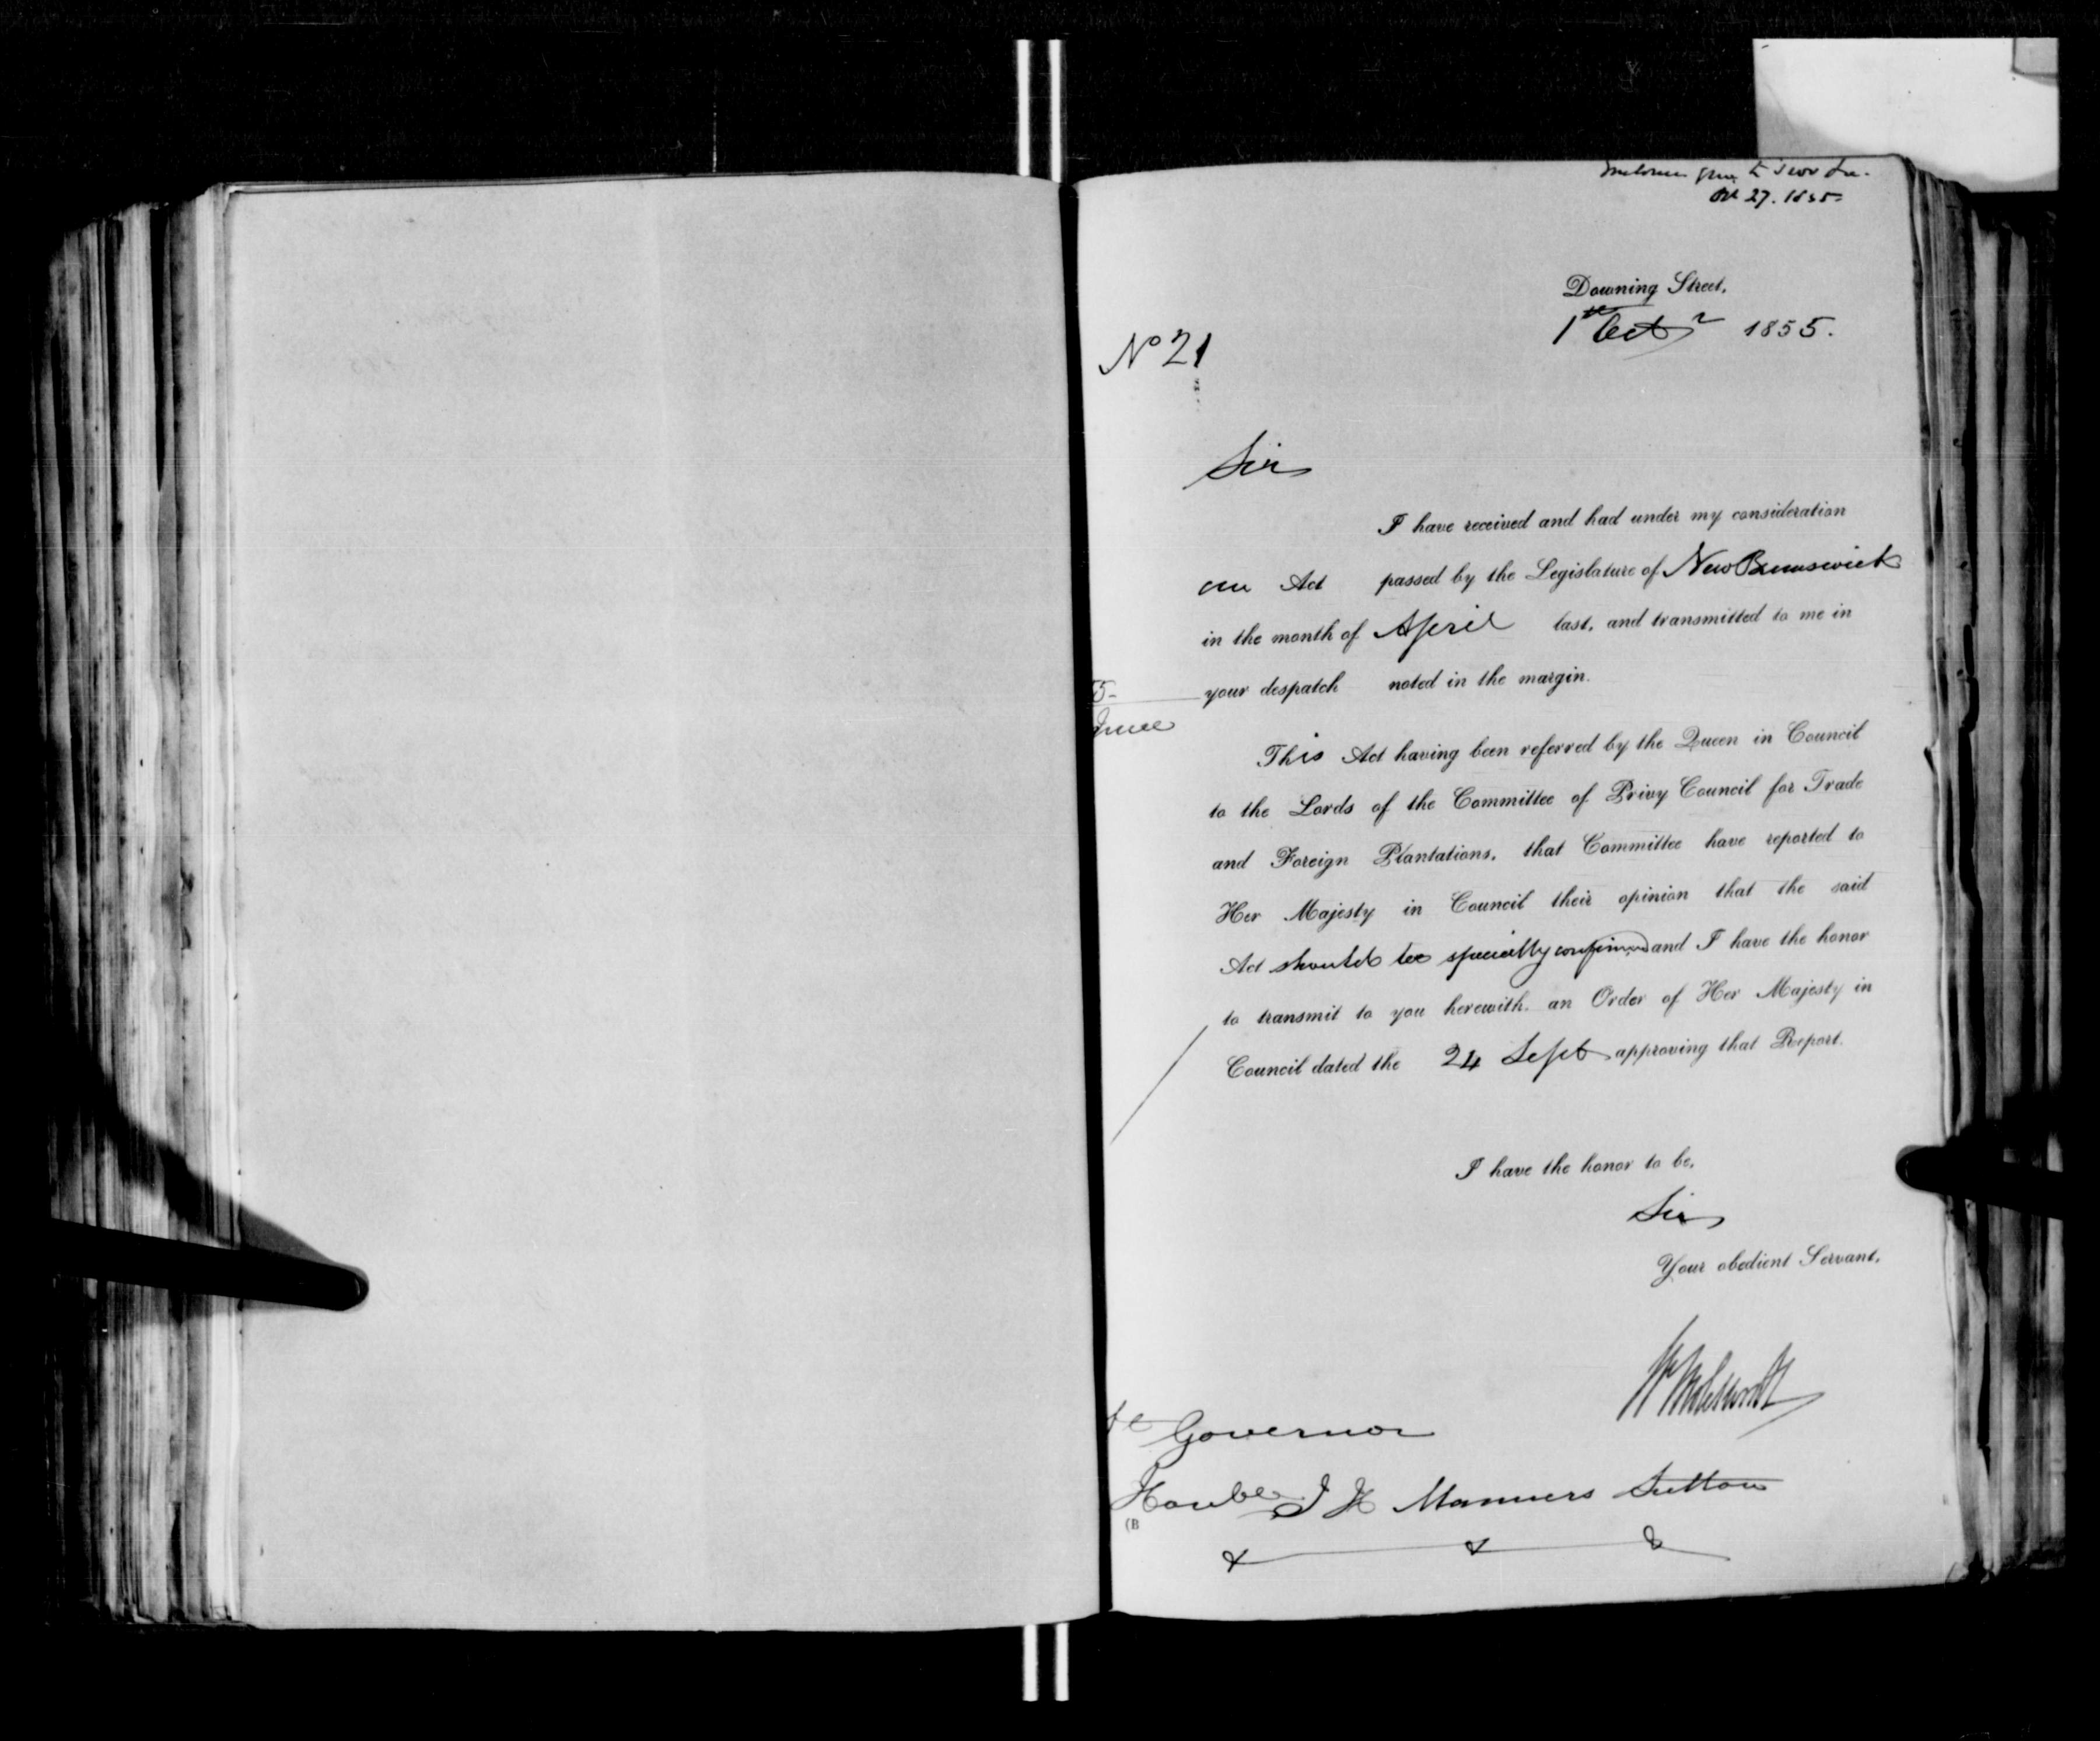 Oct 27. 1855
Downing Street,
1st Octr 1855.
No 21
Sir
I have received and had under my consideration
an Act passed by the Legislature of New Brunswick
in the month of April last, and transmitted to me in
your despatch noted in the margin.
5
June
This Act having been referred by the Queen in Council
to the Lords of the Committee of Privy Council for Trade
and Foreign Plantations, that Committee have reported to
Her Majesty in Council their opinion that the said
Act should be specially confirmed and I have the honor
to transmit to you herewith an Order of Her Majesty in
Council dated the 24 Sept approving that Report.
I have the honor to be,
Sir
Your obedient Servant,
W Molesworth
Governor
Honble J H Manners Sutton
(B
& & &